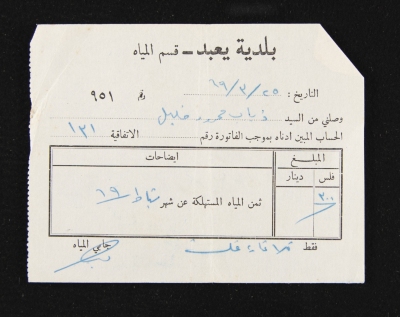 بلدية يعبد - قسم المياه
التاريخ : ٢٥ / ٣ / ٦٩ رقم ٩٥١
وصلني من السيد ذياب حمدو خليل
الحساب المبين ادناه بموجب الفاتورة رقم الاتفاقية ١٣١
المبلغ ايضاحات
فلس دينار
٣٠٠ ثمن المياه المستهلكة عن شهر شباط ٦٩
فقط ثلاثماية فلس جابي المياه